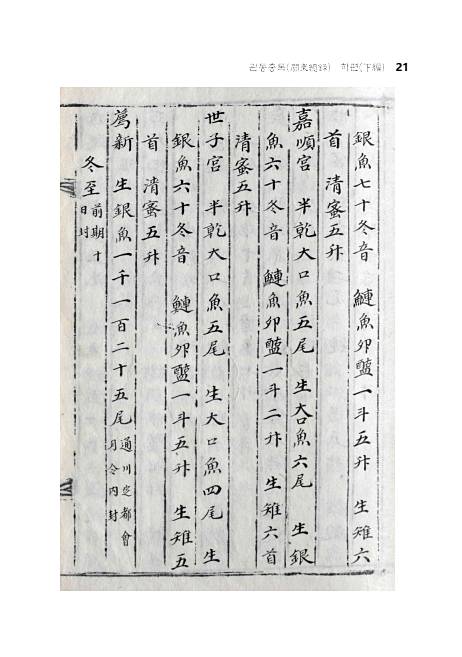 관동총록(關東總錄) 하편(下編) 21
銀魚七十冬音 鰱魚卵醢一斗五升 生雉六
首 淸蜜五升
嘉順宮 半乾大口魚五尾 生大口魚六尾 生銀
魚六十冬音 鰱魚卵醢一斗二升 生雉六首
淸蜜五升
世子宮 半乾大口魚五尾 生大口魚四尾 生
銀魚六十冬音 鰱魚卵醢一斗五升 生雉五
首 淸蜜五升
薦新 生銀魚一千一百二十五尾 通川定都會
月令內封
冬至 前期十
日封